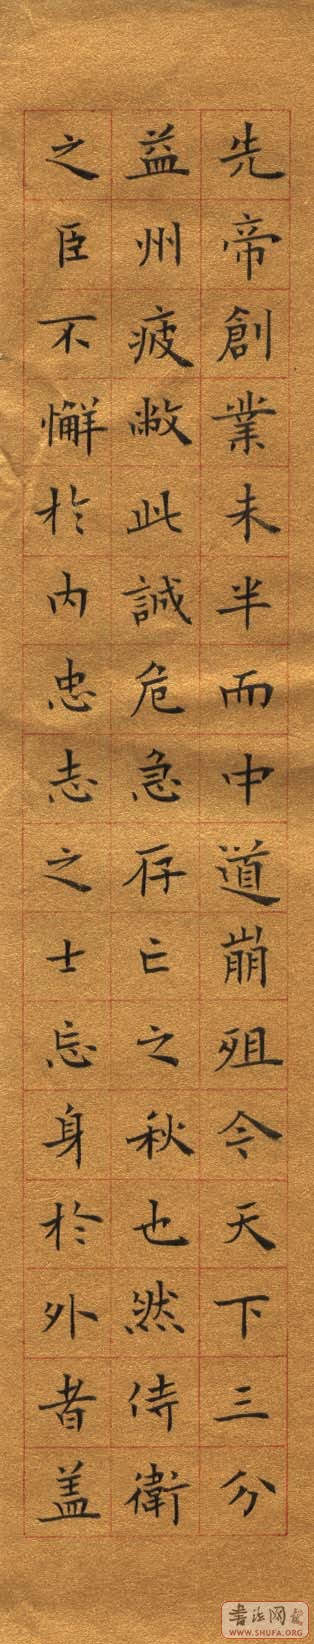 先帝創業未半而中道崩殂今天下三分
益州疲敝此誠危急存亡之秋也然侍衛
之臣不懈於内忠志之士忘身於外者盖
書法网
WWW.SHUFA.ORG